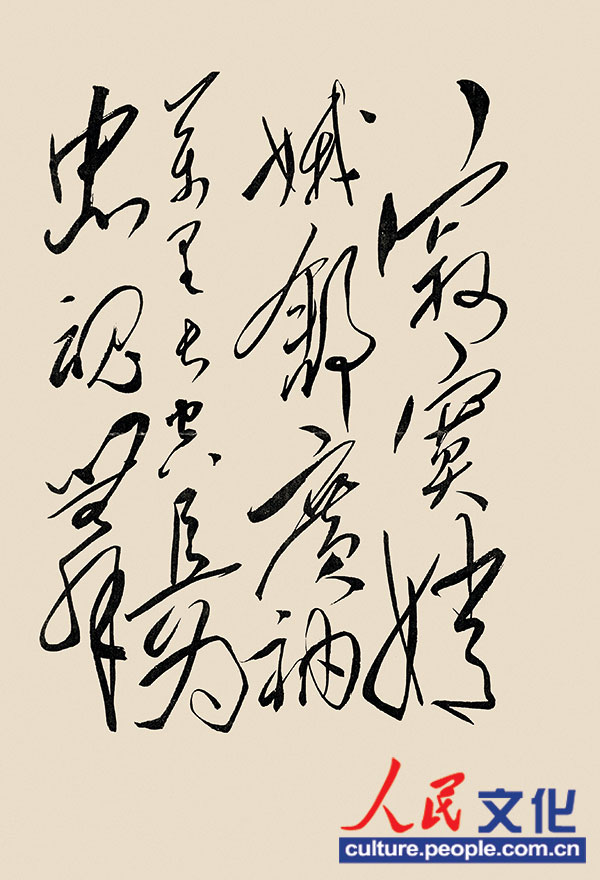 寂寞嫦
娥舒廣袖
萬里長空且為
忠魂舞
人民文化
culture.people.com.cn